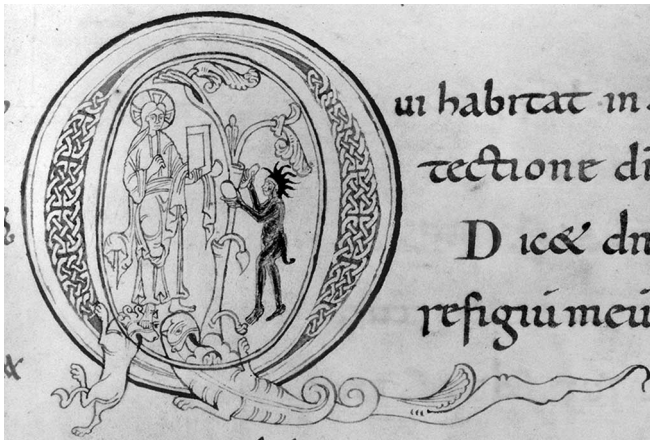 Qui habitat in
tectione di
Dic& dn
refigiū meū